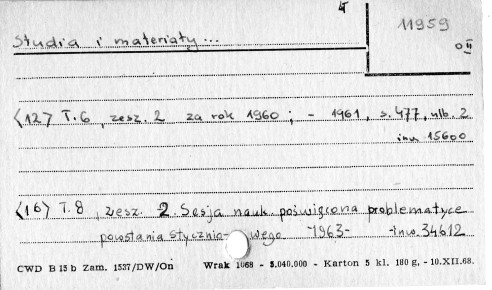 11959
Studia i materiały...
O II
<12> T.6, zesz. 2 za rok 1960; - 1961, s.477, nlb. 2
inw 15600
<16> T.8, zesz. 2. Sesja nauk. poświęcona problematyce
powstania stycznio- wego 1963- inw. 34612
CWD B 15 b Zam. 1537/DW/On Wrak 1068 - 5.040.000 - Karton 5 kl. 180 g. - 10.XII.68.